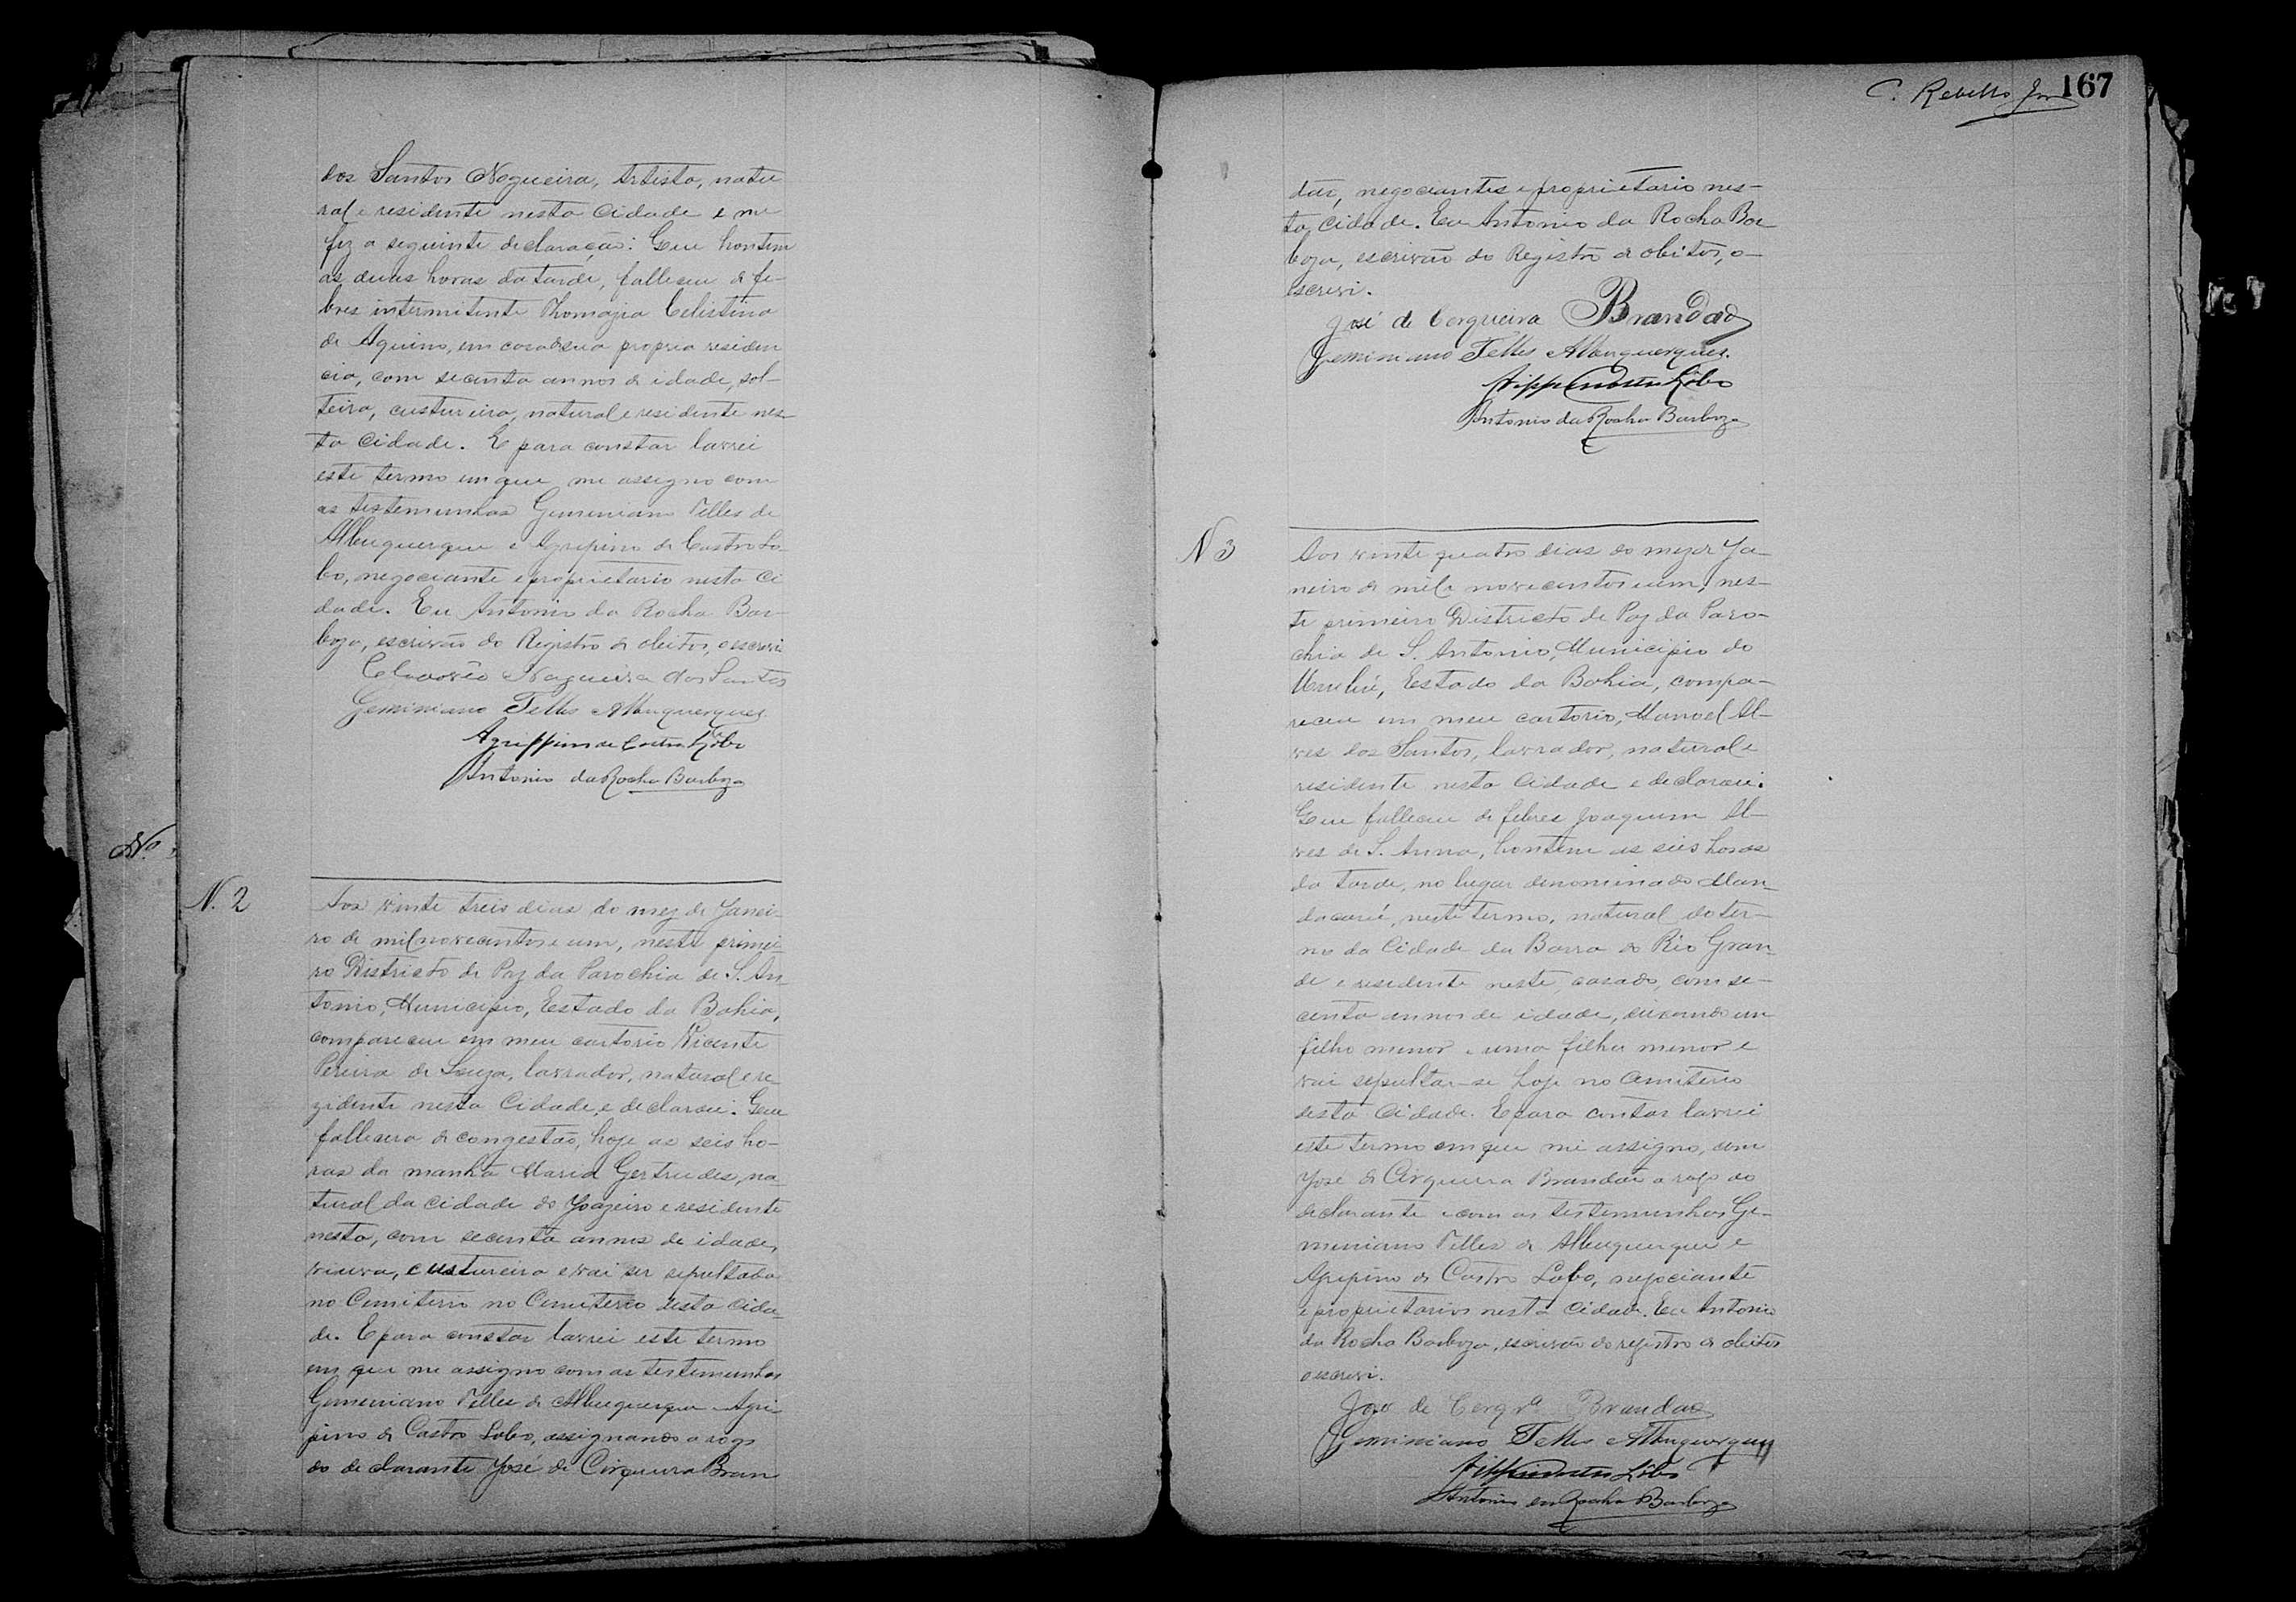 dos Santos Nogueira, Artista, natu
ral e residente nesta Cidade e me
fez a seguinte declaração: Que hontem
as duas horas da tarde, falleceu de fe-
bres intermitente Thomazia Celistina
de Aquino, em casa de sua propria residen
cia, com secenta annos de idade, sol-
teira, custureira, natural e residente nes-
ta Cidade. E para constar lavrei
este termo em que me assigno com
as testemunhas Gemeniano Telles de
Albuquerque e Agripino de Castro Lo-
bo, negociante e proprietario nesta Ci
dade. Eu Antonio da Rocha Bar-
boza, escrivão do Registro de obitos, o escrevi
Nogueira dos Santos
Geminiano Telles Albuquerques.
Agrippino de Castro Lôbo
Antonio da Rocha Barboza
N. 2
Aos vinte treis dias do mez de Janei-
ro de mil novecentos e um, neste primei
ro Districto de Paz da Parochia de S. An-
tonio, Municipio, Estado da Bahia,
compareceu em meu cartorio Vicente
Pereira de Souza, lavrador, natural e re-
zidente nesta Cidade, e declarou: Que
fallecera de congestão, hoje as seis ho-
ras da manhã Maria Gertrudes, na-
tural da cidade do Joazeiro e residente
nesta, com secenta annos de idade,
viuva, custureira e vai ser sepultada
no Cemiterio no Cemiterio desta Cida-
de. E para constar lavrei este termo
em que me assigno com as testemunhas
Gemeniano Telles de Albuquerque e Agri-
pino de Castro Lobo, assignando a rogo
do declarante José de Cirqueira Bran
C. Rebello Jor 167
dão, negociantes e proprietario nes-
ta Cidade. Eu Antonio da Rocha Bar-
boza, escrivão do Registro de obitos, o
escrevi.
José de Cerqueira Brandão
Geminiano Telles Albuquerques.
Lôbo
Antonio da Rocha Barboza
N 3
Aos vinte quatro dias do mez de Ja-
neiro de mil e novecentos e um, nes-
te primeiro Districto de Paz da Paro-
chia de S. Antonio, Municipio do
Estado da Bahia, compa-
receu em meu cartorio, Manoel Al-
ves dos Santos, lavrador, natural e
residente nesta Cidade e declarou:
Que falleceu de febres Joaquim Al-
ves de S. Anna, hontem as seis horas
da tarde, no lugar denominado Man-
dacarú, neste termo, natural do ter-
mo da Cidade da Barra do Rio Gran-
de e residente neste, casado, com se-
centa annos de idade, deixando um
filho menor e uma filha menor e
vai sepultar-se hoje no Cemiterio
desta Cidade. E para contar lavrei
este termo em que me assigno, com
José de Cirqueira Brandão a rogo do
declarante e com as testemunhas Ge-
meniano Telles de Albuquerque e
Agripino de Castro Lobo, negociante
e proprietarios nesta Cidade. Eu Antonio
da Rocha Barboza, escrivão do registro de obitos
o escrevi.
José de Cerqra Brandão
Geminiano Telles Albuquerques
Lôbo
Antonio da Rocha Barboza